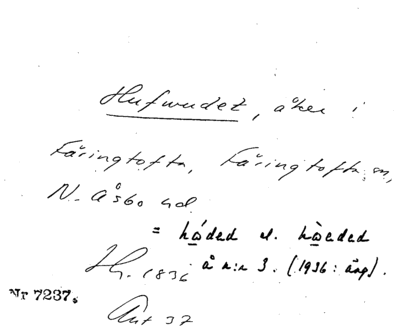 Hufwudet, åker i
Fåringtofta, Fåringtofta sn,
N. Åsbo hd
= hóded el. hòeded
Hr. 1836 å n:r 3. (1936: äng).
Nr 7237.
Ant 37